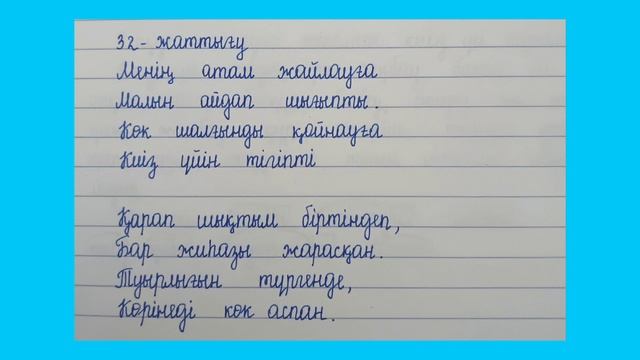 32- жаттығу
Менің атам жайлауға
Малын айдап шығыпты.
Көк шалғынды қайнауға
Киіз үйін тігіпті

Қарап шықтым біртіндеп,
Бар жиһазы жарасқан.
Туырлығын түргенде,
Көрінеді көк аспан.